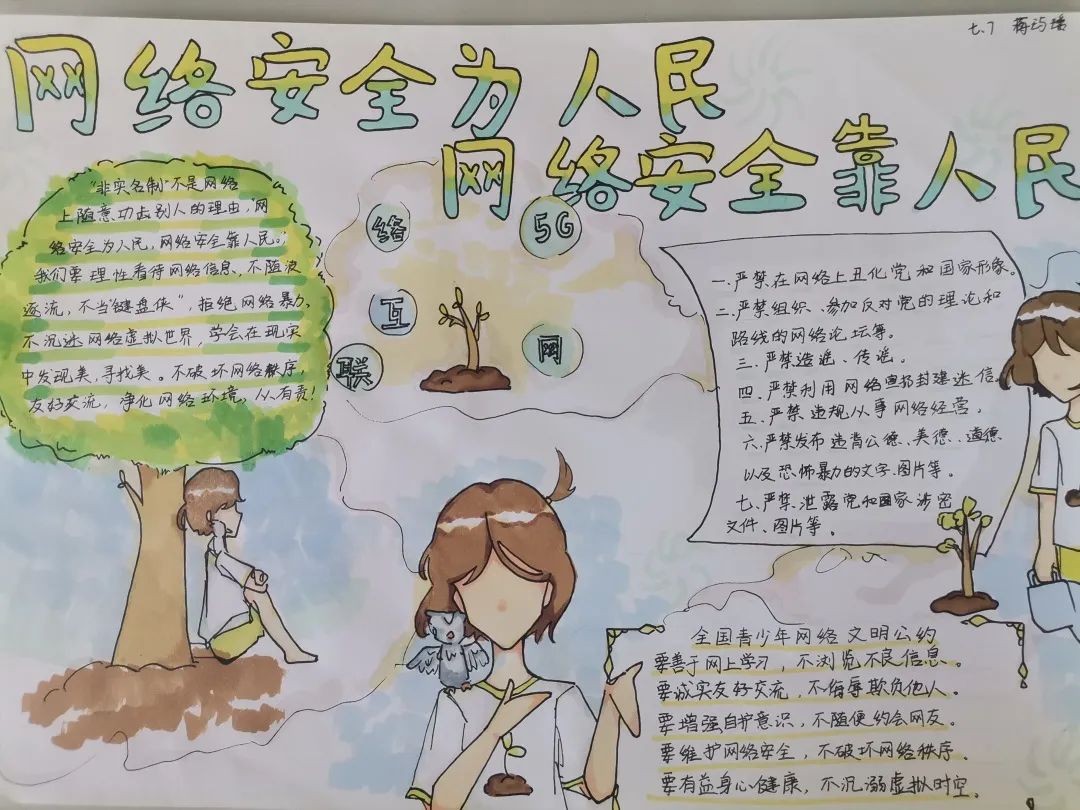 七.7 蒋巧瑶
网络安全为人民
网络安全靠人民
"非实名制"不是网络
上随意功击别人的理由,"网
络安全为人民,网络安全靠人民。"
我们要理性看待网络信息、不随波
逐流,不当"键盘侠",拒绝网络暴力,
不沉迷网络虚拟世界,学会在现实
中发现美,寻找美。不破坏网络秩序,
友好交流,净化网络环境,从人有责!
络
5G
互
网
联
一.严禁在网络上丑化党和国家形象。
二.严禁组织、参加反对党的理论和
路线的网络论坛等。
三.严禁造谣、传谣。
四.严禁利用网络宣扬封建迷信.
五.严禁违规从事网络经营.
六.严禁发布违背公德、美德、道德
以及恐怖暴力的文字.图片等。
七.严禁泄露党和国家涉密
文件、图片等。
全国青少年网络文明公约
要善于网上学习,不浏览不良信息。
要诚实友好交流,不侮辱欺负他人。
要增强自护意识,不随便约会网友。
要维护网络安全,不破坏网络秩序.
要有益身心健康,不沉溺虚拟时空.